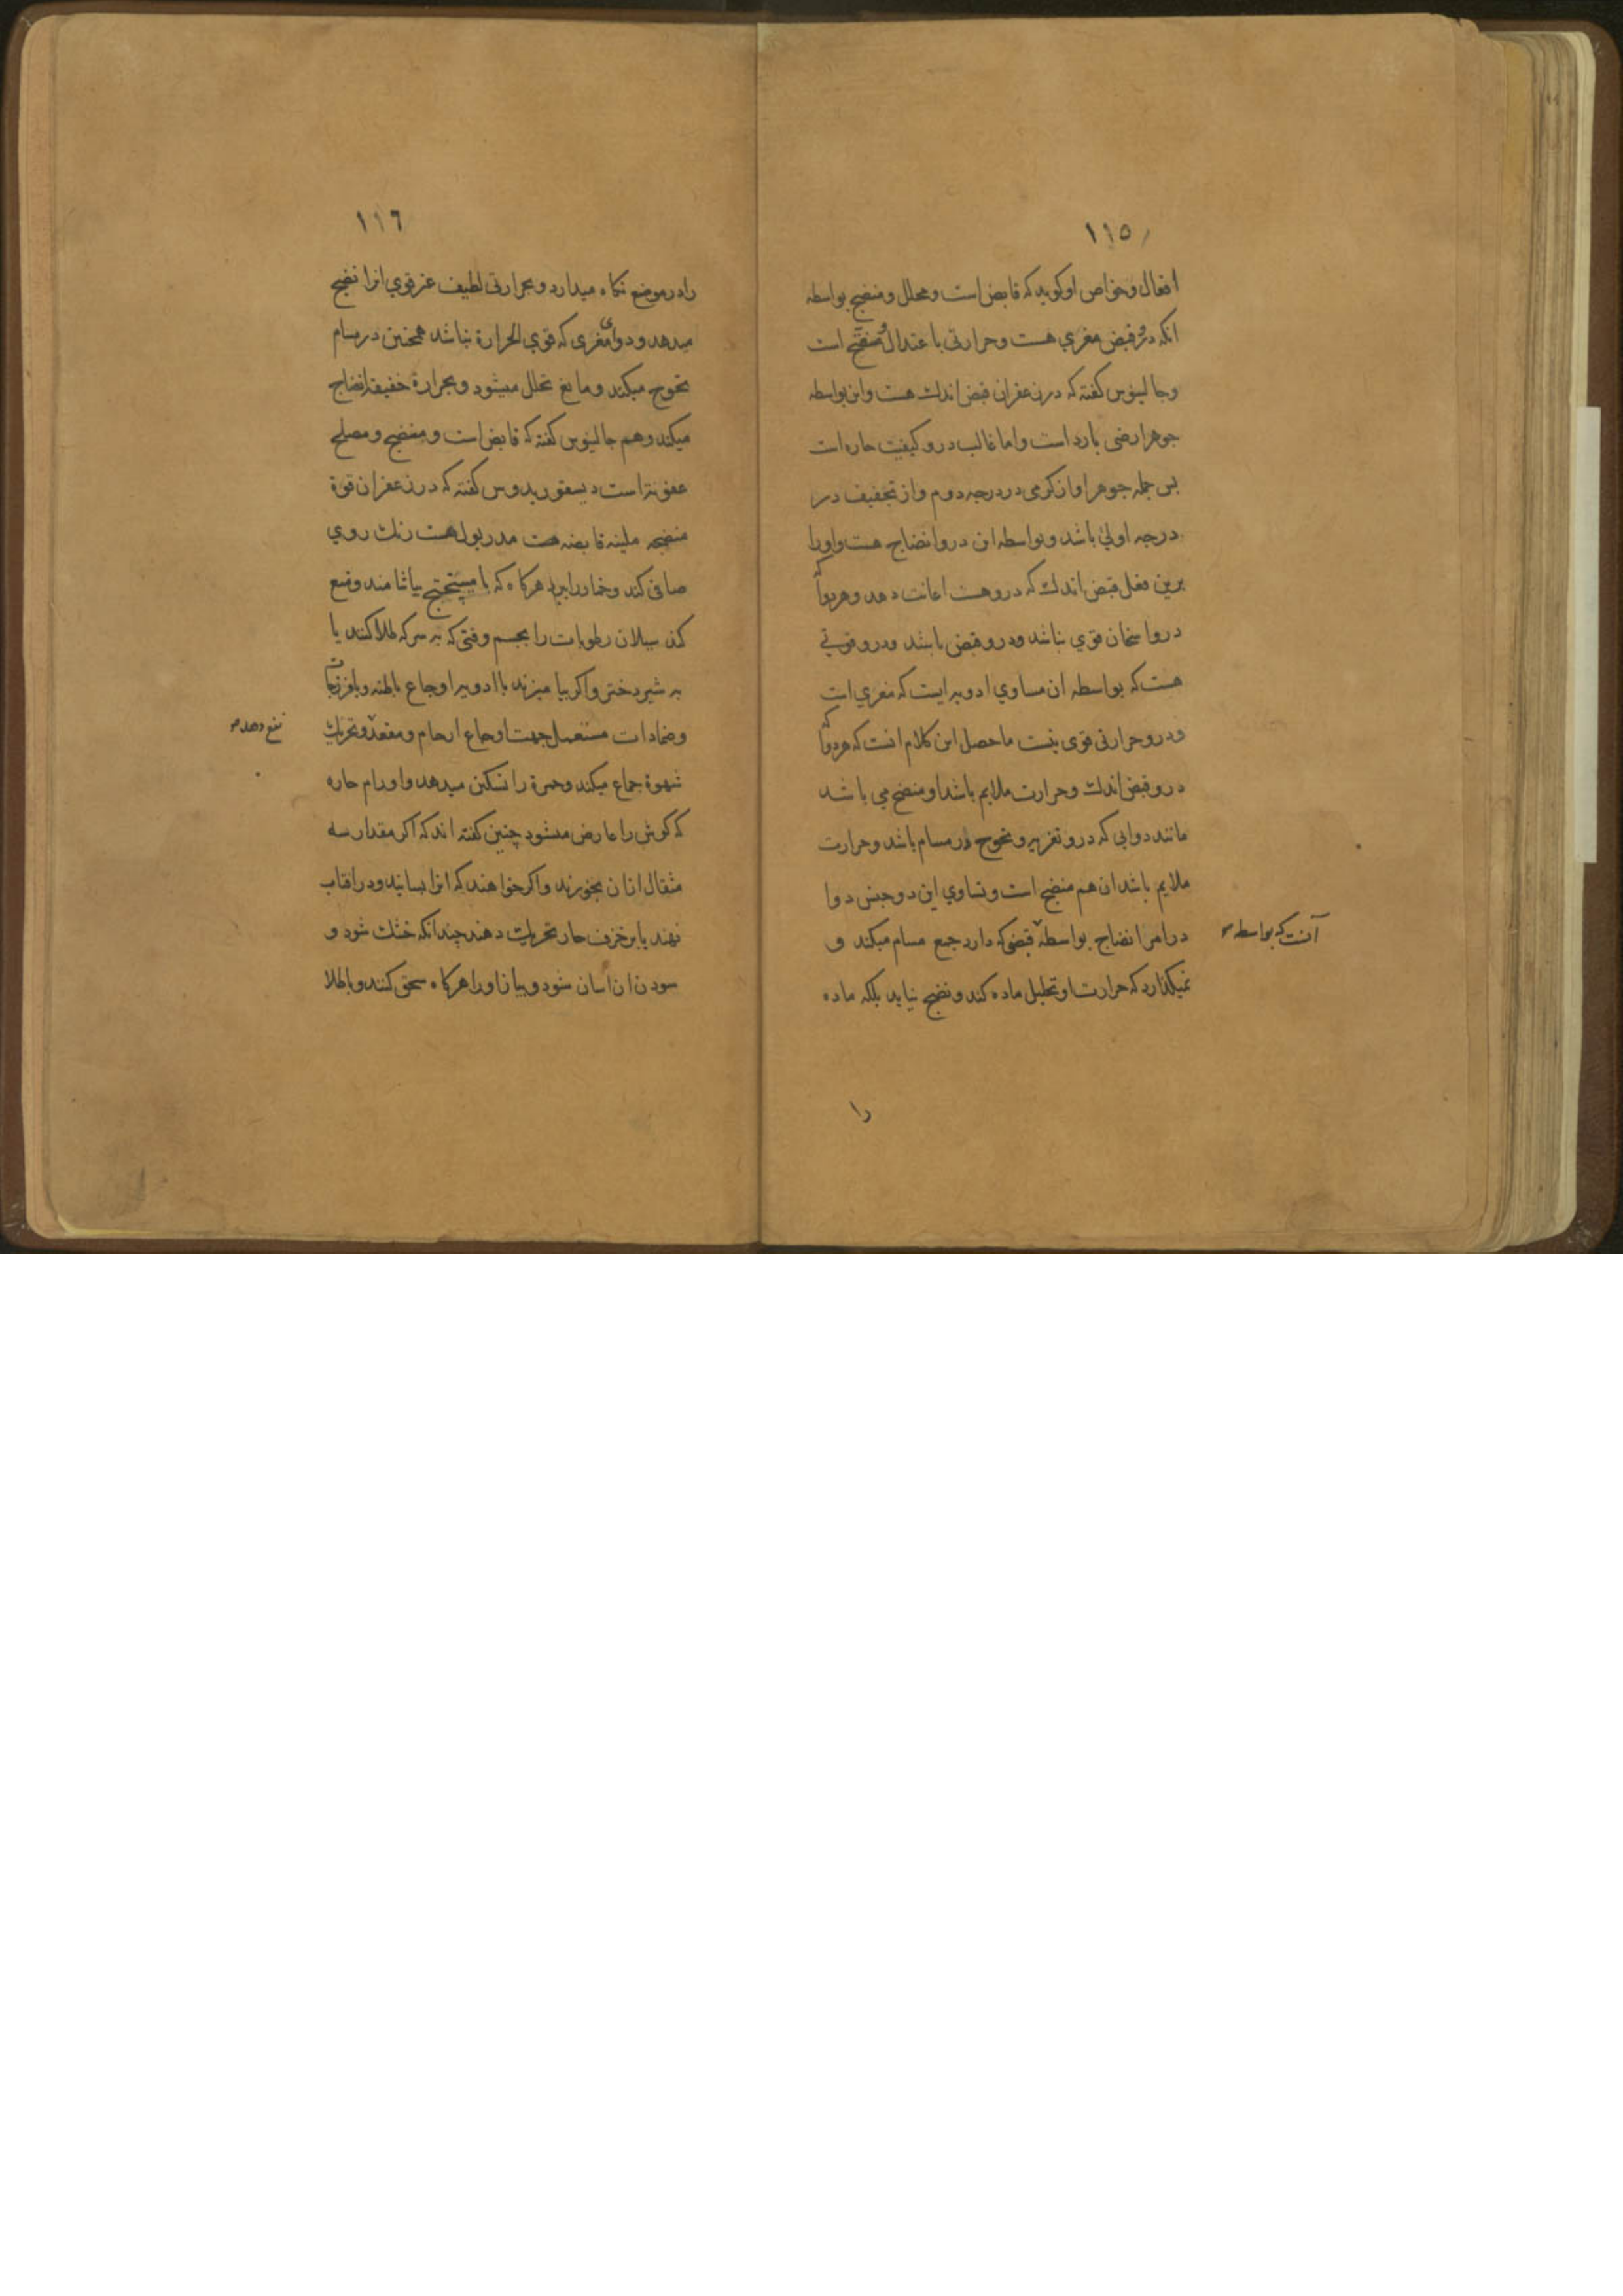 ١١٥
افعال وخواص او كويد كه قابض است ومحلل ومنضج بواسطه
انكه درو قبض مغري هست وحرارتى با عتدال و مفتح است
وجالينوس كفته كه در زعفران قبض اندك هست واين بواسطه
جوهر ارضى بارد است واما غالب درو كيفيت حاره است
بس جمله جوهر او از كرمى در درجه دوم و از تجفيف در
درجه اولي باشد وبواسطه اين درو انضاج هست واورا
برين فعل قبض اندك كه دروهست اعانت دهد وهر دوا كه
دروا سخان قوي نباشد ودرو قبض باشد ودرو قوتي
هست كه بواسطه ان مساوي ادويه ايست كه مغري است
ودرو حرارتى قوى نيست ماحصل اين كلام انست كه هر دوا كه
درو قبض اندك وحرارت ملايم باشد او منضج مي باشد
مانند دوايى كه درو تغريه و تحوج در مسام باشد وحرارت
ملايم باشد ان هم منضج است وتساوي اين دوجنس دوا
در امر انضاج بواسطه قبضى كه دارد جمع مسام ميكند و
آنست كه بواسطه
نميكذارد كه حرارت او تحليل ماده كند ونضج نيابد بلكه ماده
را
١١٦
را در موضع نكاه ميدارد و بحرارتى لطيف غير قوي انرا نضج
ميدهد و دواى مغرى كه قوي الحرارة نباشد همچنين در مسام
تحوج ميكند ومانع تحلل ميشود وبحرارة خفيفه انضاج
ميكند وهم جالينوس كفته كه قابض است ومنضج ومصلح
عفونة است ديسقوريدوس كفته كه در زعفران قوة
منضجه ملينه قابضه هست مدر بول هست رنك روي
صافى كند وخمار را ببرد هركاه كه با ميبختج بياشامند ومنع
كند سيلان رطوبات را بچشم وقتى كه به سركه طلا كنند يا
به شير دختر واكر بيا ميزند با ادويه اوجاع باطنه وبا فرزجات
وضمادات مستعمل جهت اوجاع ارحام ومقعده وتحريك
نفع دهد
شهوة جماع ميكند وحمرة را تسكين ميدهد واورام حاره
كه كوش را عارض ميشود چنين كفته اند كه اكر مقدار سه
مثقال ازان بخورند واكر خواهند كه انرا بسايند ودر افتاب
نهند يا بر خزف حار تحريك دهند چندانكه خشك شود و
سودن ان اسان شود وبيان اورا هركاه سحق كنند وبا طلا